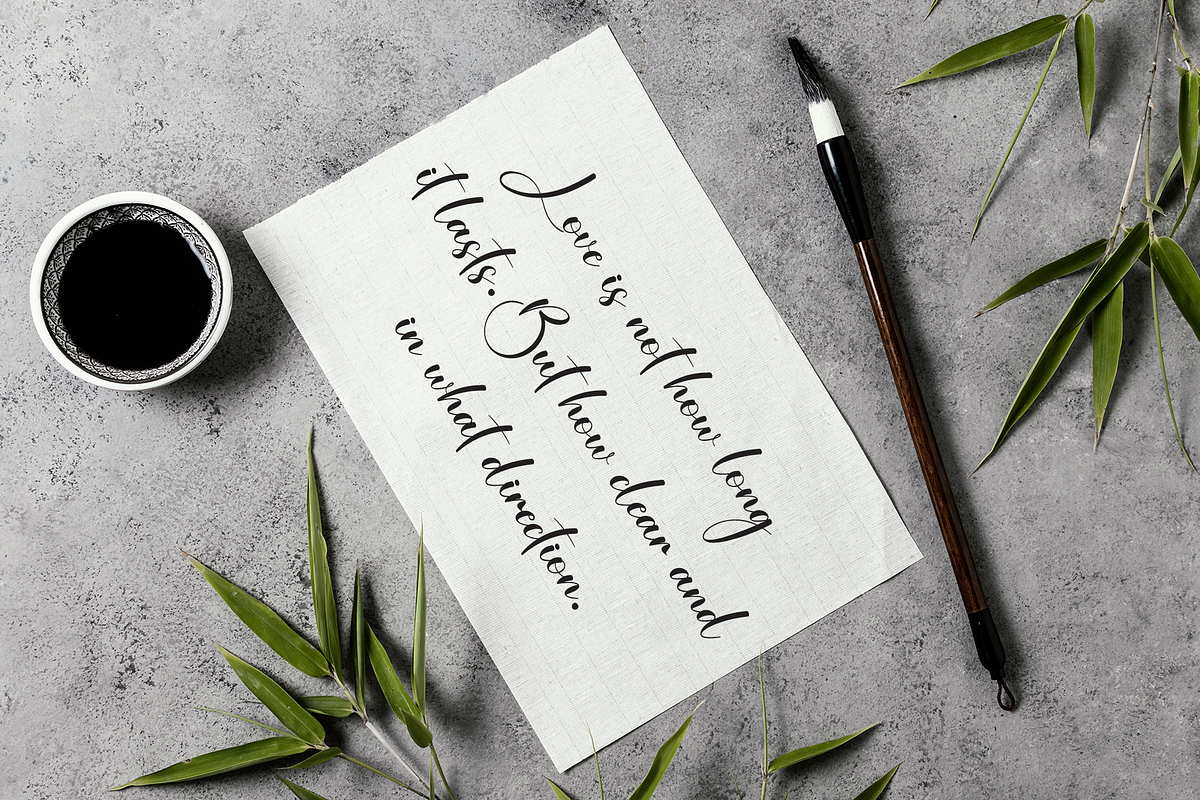 Love is not how long
it lasts. But how clear and
in what direction.